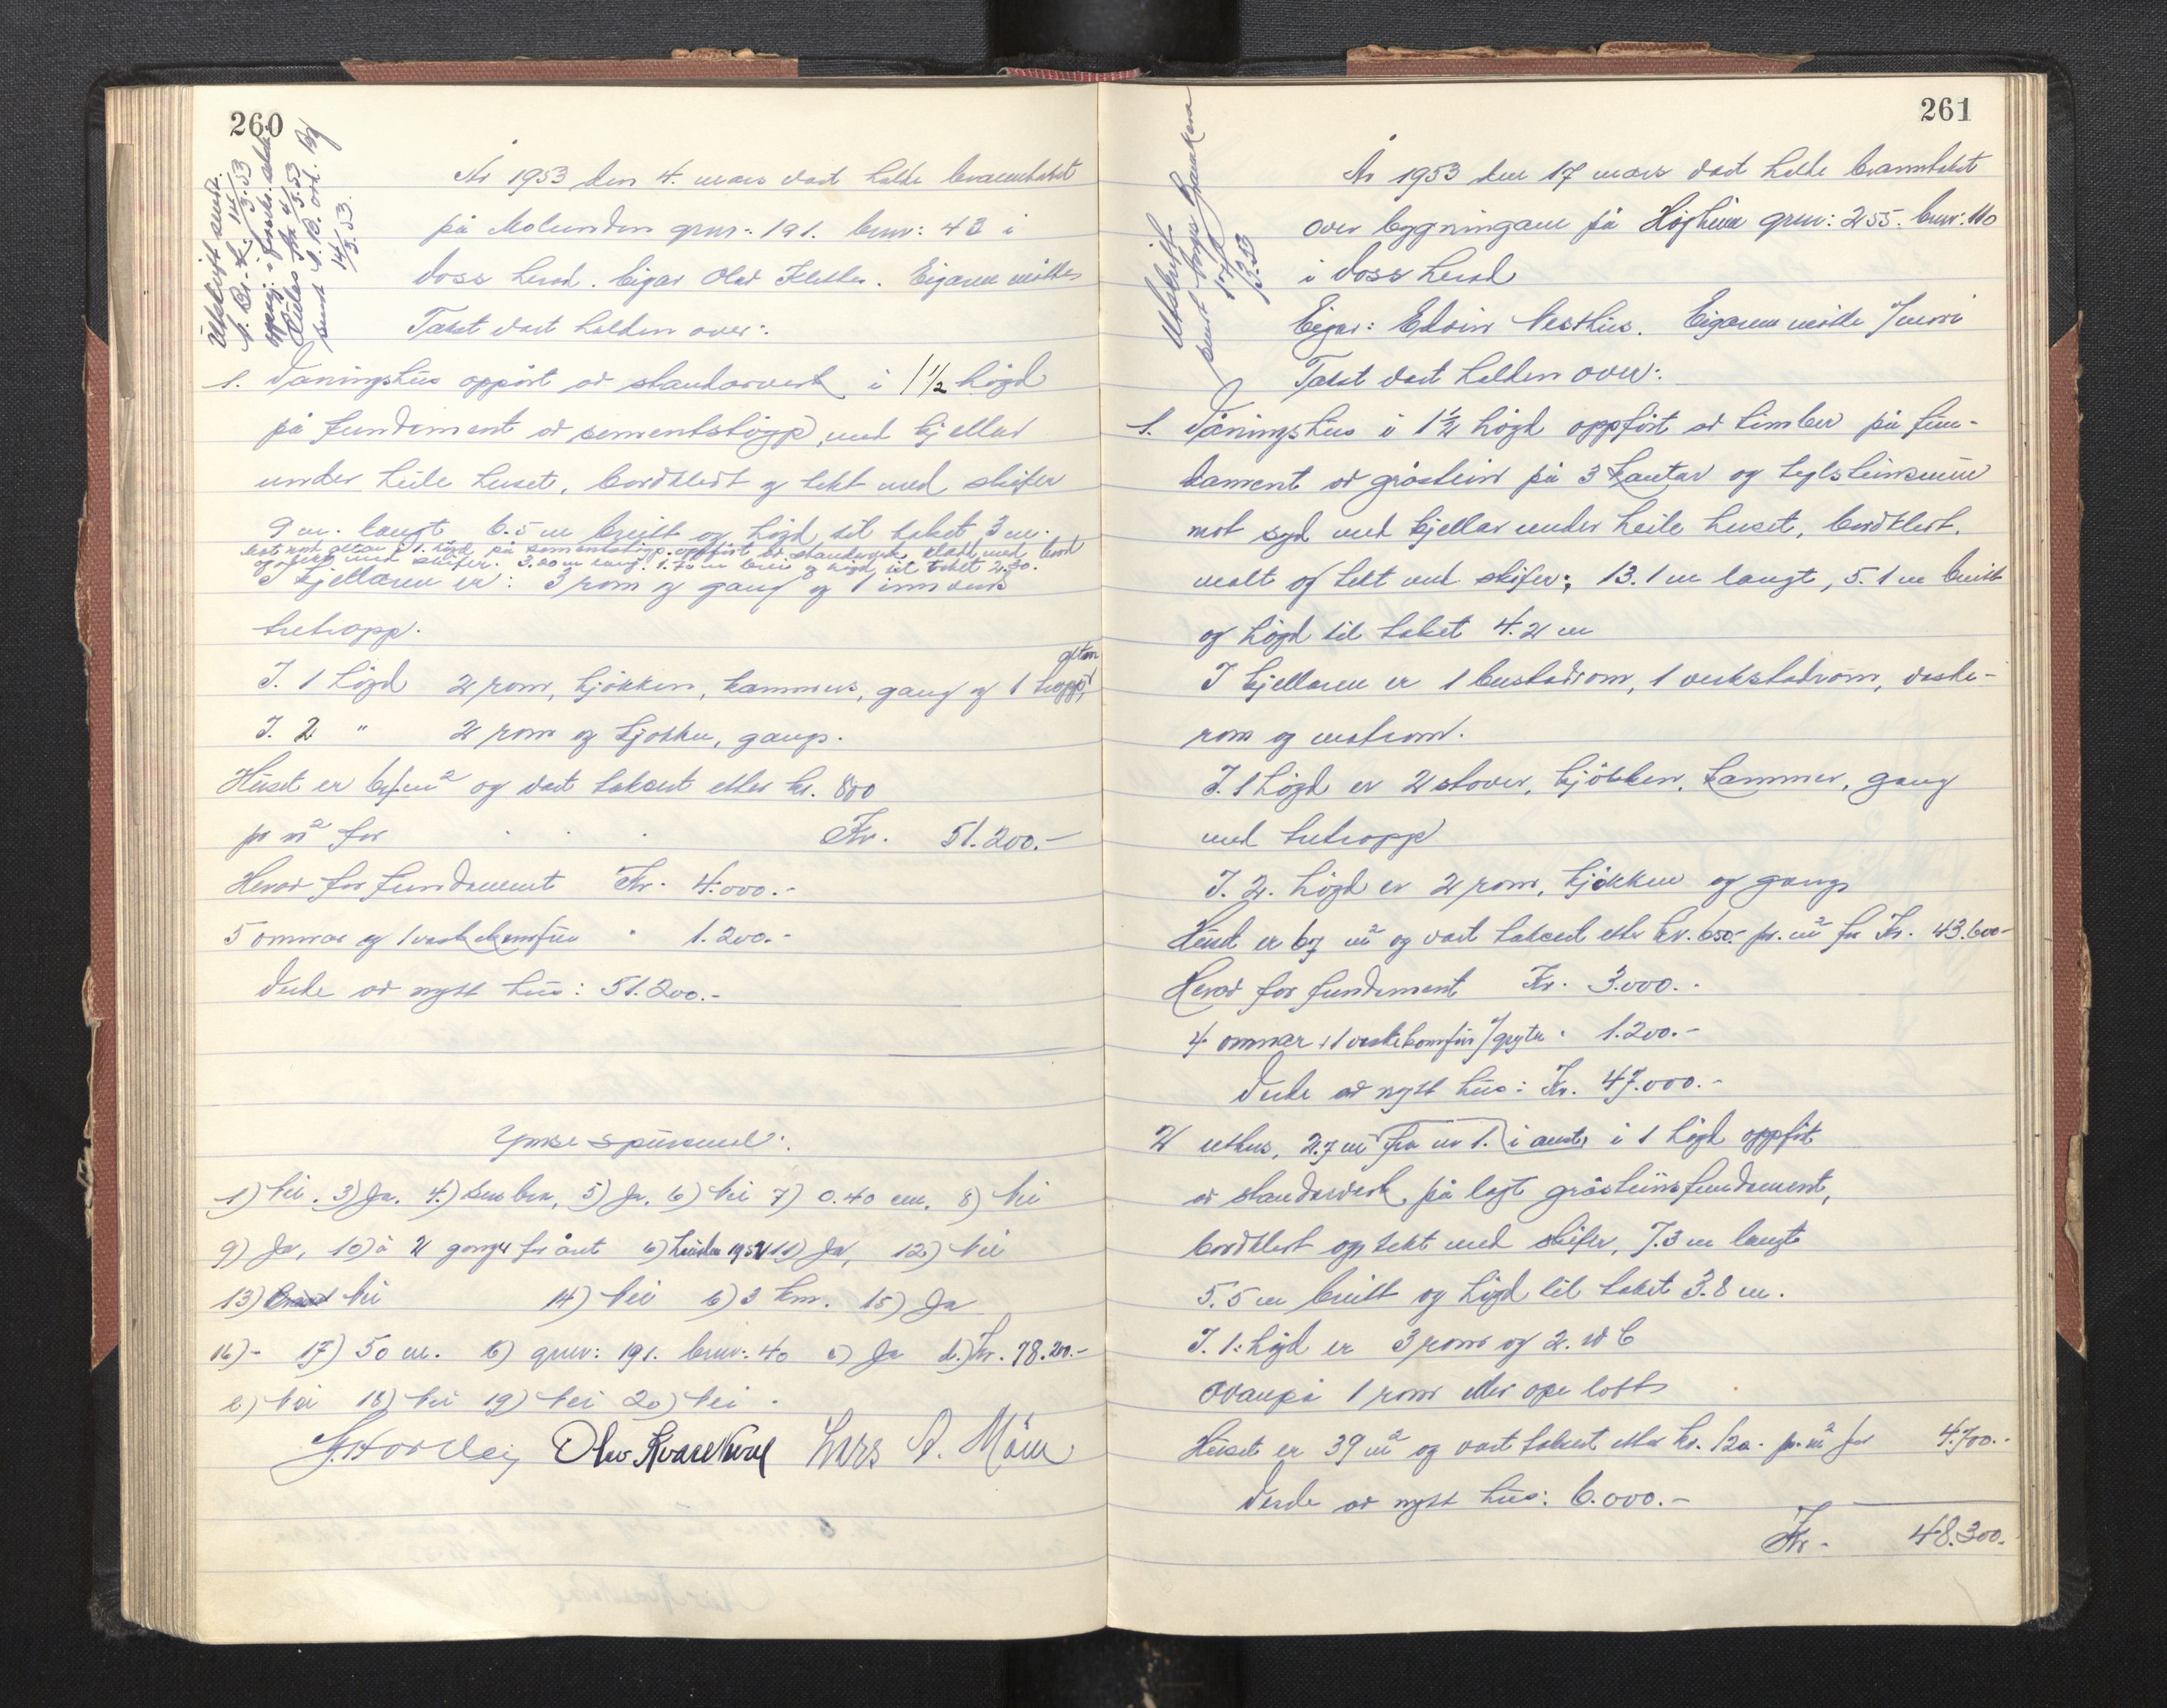 260
Utskrift sendt
14/3.53
sendt
14/3.53.
År 1953 den 4. mars vart halde branntakst
på Molunden gnr: 191. bnr: 43 i
Voss herad. Eigar Olav Eigaren møtte
Takst vart halden over:
1. Våningshus oppørt av standarverk i 1 1/2 högd
på fundament av sementstöyp, med kjellar
under heile huset, bordkledt og tekt med skifer
9 m. langt 6.5 m breitt og högd til taket 3 m.
altan i 1. högd på sementstöyp. oppført av standarverk kledd med bord
og tekt med skifer. 3.20 m lang. 1.70 m brei og högd til taket 2.30.
I kjellaren er: 3 rom og gang og 1 innvendi
tretropp.
altan
I. 1 högd 2 rom, kjökken, kammers, gang og 1 tropp,
I. 2 " 2 rom og kjøkken, gang.
Huset er 64 m² og vart taksert etter kr. 800
pr m² for . . . Kr. 51.200.-
Herav for fundament Kr. 4.000.-
5 omnar og 1 vaskekomfur " 1.200.-
Verde av nytt hus: 51.200.-
Ymse spursmål:
1) Nei. 3) Ja. 4.) 5) Ja. 6) Nei 7) 0.40 cm. 8) Nei
9) Ja, 10) a 2 gonger for året b) hausten 1952 11) Ja, 12) Nei
13) Nei 14) Nei b) 3 km. 15) Ja
16) - 17) 50 m. b) gnr: 191. bnr: 40 c) Ja d.) Kr. 78.200.-
e) Nei 18) Nei 19) Nei 20) Nei .
Olav Kvarekval Lars A. Möen
261
Utskrift
17/3.53
År 1953 den 17 mars vart halde branntakst
over bygningane på Högheim gnr: 255. bnr: 110
i Voss herad
Eigar: Edvin Nesthus. Eigaren møtte
Takst vart halden over:
1. Våningshus i 1 1/2 högd oppført av timber på fun-
dament av gråstein på 3 kantar og teglsteinsmur
mot syd med kjellar under heile huset, bordkledt,
malt og tekt med skifer; 13.1 m langt, 5.1 m breitt
og högd til taket 4.2 m
I kjellaren er 1 bustadrom, 1 verkstadrom, vaske-
rom og matrom.
I. 1 högd er 2 stover, kjökken, kammer, gang
med tretropp
I. 2. högd er 2 rom, kjøkken og gang
Huset er 67 m² og vart taksert etter kr. 650.- pr. m² for Kr. 43.600-
Herav for fundament Kr. 3.000.-
4 omnar + 1 vaskekomfur / gryte " 1.200.-
Verde av nytt hus: Kr. 47.000.-
2 uthus, 2.7 m fra nr 1. i aust, i 1 högd oppført
av standarverk, på lagt gråsteinsfundament,
bordkledt og tekt med skifer, 7.3 m langt
5.5 m breitt og högd til taket 3.8 m.
I. 1. högd er 3 rom og 2. W C
Ovanpå 1 rom elles ope loft
Huset er 39 m² og vart taksert etter kr. 120.- pr. m² for 4.700.-
Verde av nytt hus: 6.000.-
Kr. 48.300.